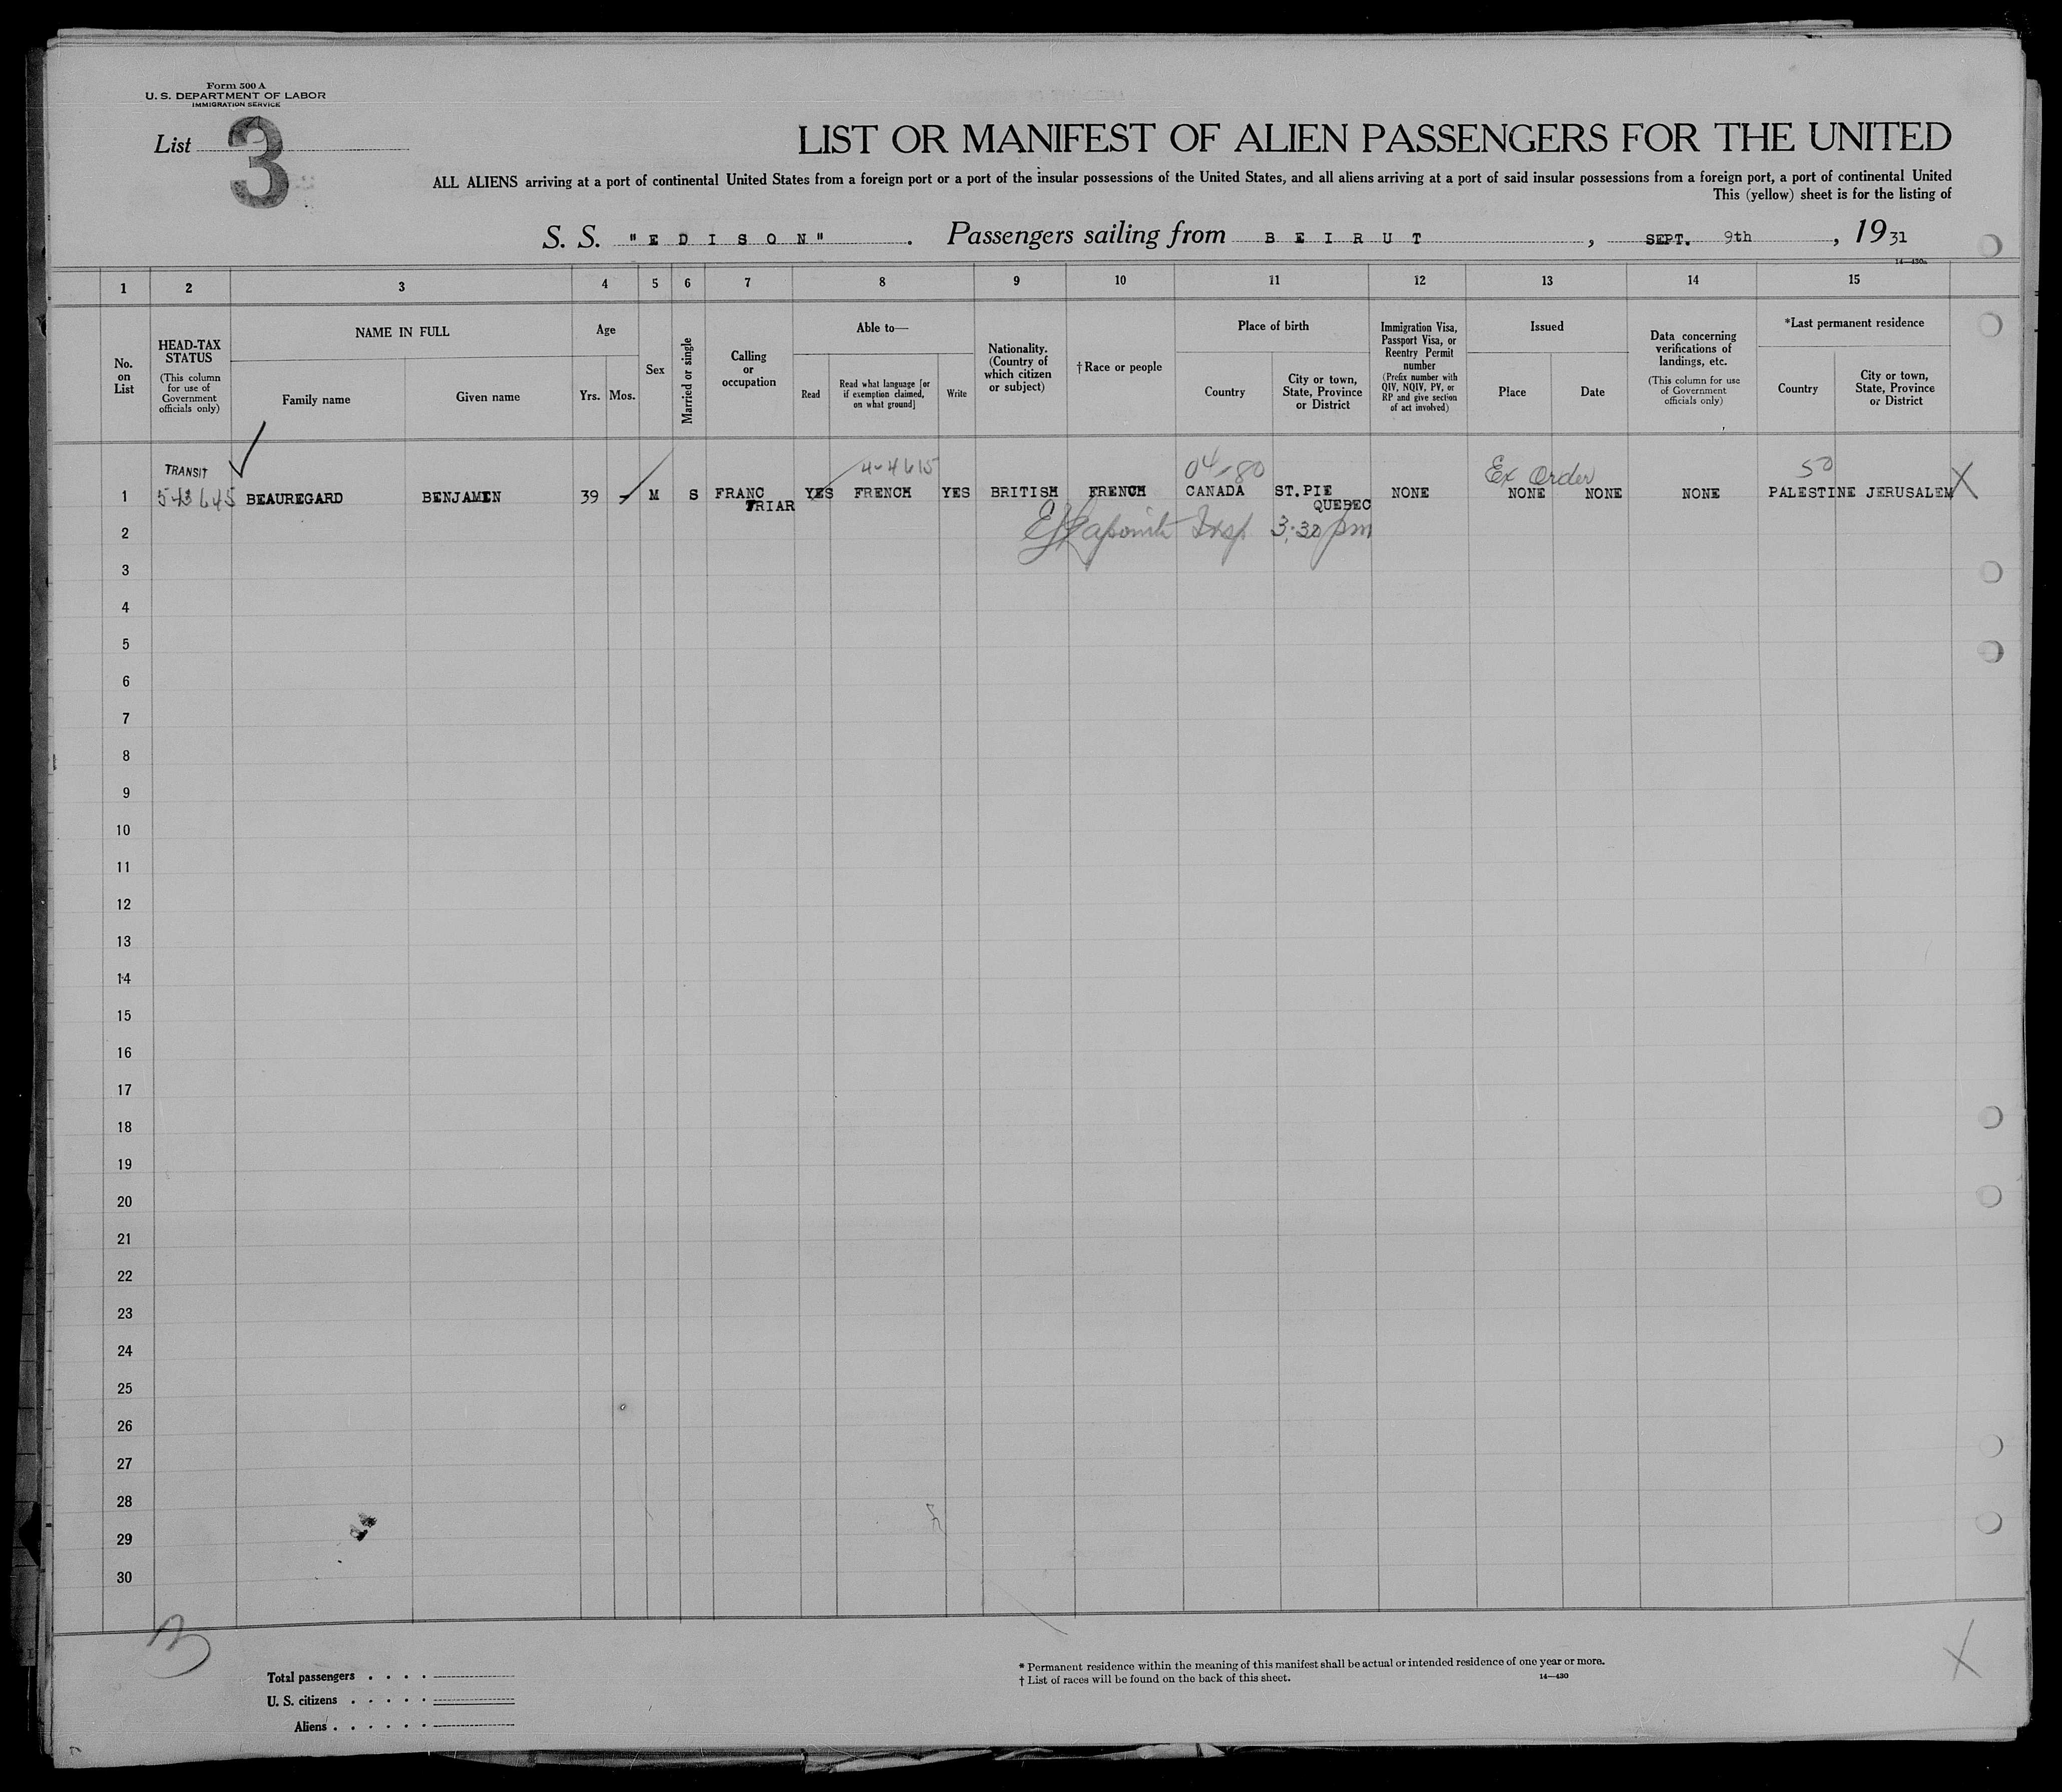 Form 500 A
U. S. DEPARTMENT OF LABOR
IMMIGRATION SERVICE
List 3
LIST OR MANIFEST OF ALIEN PASSENGERS FOR THE UNITED
ALL ALIENS arriving at a port of continental United States from a foreign port or a port of the insular possessions of the United States, and all aliens arriving at a port of said insular possessions from a foreign port, a port of continental United
This (yellow) sheet is for the listing of
S. S. "EDISON" . Passengers sailing from BEIRUT , SEPT. 9th , 1931
14—430a
1 2 3 4 5 6 7 8 9 10 11 12 13 14 15
No. on List
HEAD-TAX STATUS (This column for use of Government officials only)
NAME IN FULL
Family name
Given name
Age
Yrs. Mos.
Sex
Married or single
Calling or occupation
Able to—
Read
Read what language [or if exemption claimed, on what ground]
Write
Nationality. (Country of which citizen or subject)
† Race or people
Place of birth
Country
City or town, State, Province or District
Immigration Visa, Passport Visa, or Reentry Permit number (Prefix number with QIV, NQIV, PV, or RP and give section of act involved)
Issued
Place
Date
Data concerning verifications of landings, etc. (This column for use of Government officials only)
*Last permanent residence
Country
City or town, State, Province or District
TRANSIT 04-80 Ex Order 50
1 543645 BEAUREGARD BENJAMEN 39 - M S FRANC YES FRENCH YES BRITISH FRENCH CANADA ST.PIE NONE NONE NONE NONE PALESTINE JERUSALEM X
FRIAR QUEBEC
2 Insp 3:30 pm
3
4
5
6
7
8
9
10
11
12
13
14
15
16
17
18
19
20
21
22
23
24
25
26
27
28
29
30
3 X
Total passengers . . . .
U. S. citizens . . . . .
Aliens . . . . . .
* Permanent residence within the meaning of this manifest shall be actual or intended residence of one year or more.
† List of races will be found on the back of this sheet.
14—430